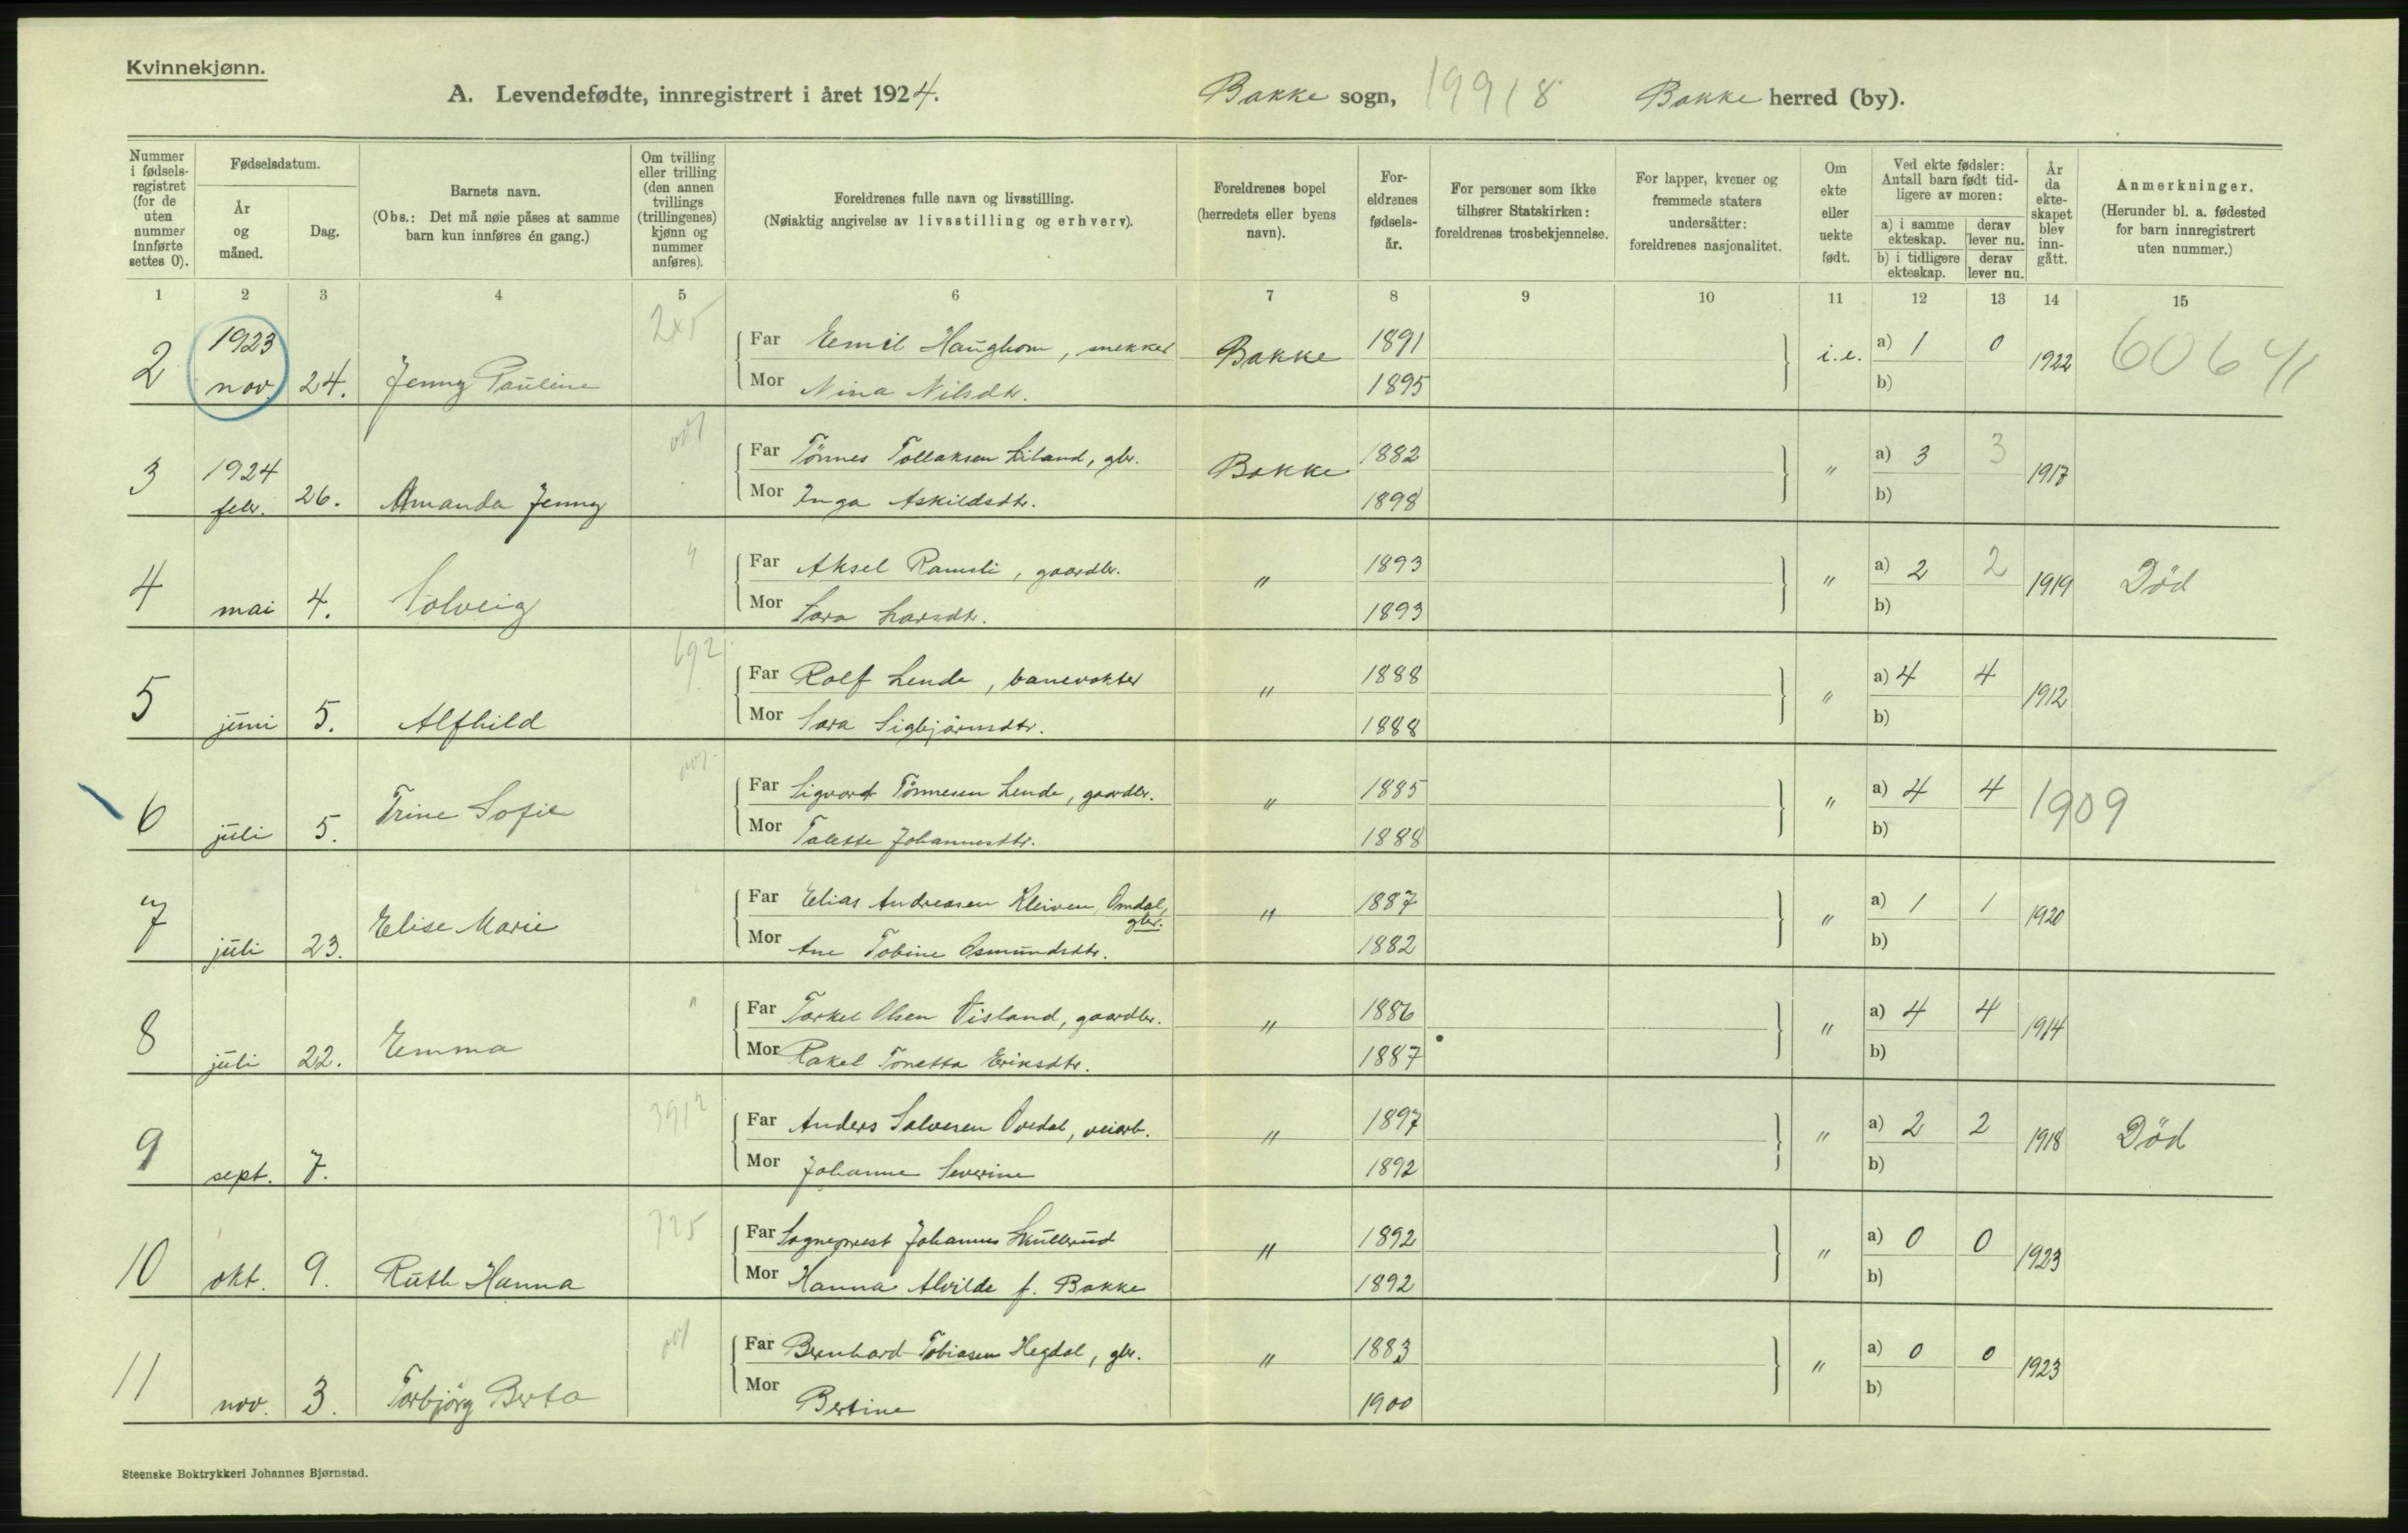 Kvinnekjønn.
A. Levendefødte, innregistrert i året 1924. Bakke sogn, 19918 Bakke herred (by).
Nummer i fødsels-registret (for de uten nummer innførte settes 0).
Fødselsdatum.
År og måned.
Dag.
Barnets navn.
(Obs.: Det må nøie påses at samme barn kun innføres én gang.)
Om tvilling eller trilling (den annen tvillings (trillingenes) kjønn og nummer anføres).
Foreldrenes fulle navn og livsstilling.
(Nøiaktig angivelse av livsstilling og erhverv).
Foreldrenes bopel (herredets eller byens navn).
For-eldrenes fødsels-år.
For personer som ikke tilhører Statskirken: foreldrenes trosbekjennelse.
For lapper, kvener og fremmede staters undersåtter: foreldrenes nasjonalitet.
Om ekte eller uekte født.
Ved ekte fødsler: Antall barn født tid-ligere av moren:
a) i samme ekteskap. derav lever nu.
b) i tidligere ekteskap. derav lever nu.
År da ekte-skapet blev inn-gått.
Anmerkninger.
(Herunder bl. a. fødested for barn innregistrert uten nummer.)
1 2 3 4 5 6 7 8 9 10 11 12 13 14 15
2 1923 nov. 24. Jenny Pauline 2x5 Far Emil Haughom, snekker Bakke 1891 i.e. a) 1 0 1922 606 41
Mor Nina Nilsdtr. 1895 b)
3 1924 febr. 26. Amanda Jenny Far Tönnes Tollaksen Liland, gbr. Bakke 1882 " a) 3 3 1917
Mor Inga Askildsdtr. 1898 b)
4 mai 4. Solveig " Far Aksel Ramsli, gaardbr. " 1893 " a) 2 2 1919 Död
Mor Sara Larsdtr. 1893 b)
5 juni 5. Alfhild 692 Far Rolf Lende, banevokter " 1888 " a) 4 4 1912
Mor Sara Sigbjörnsdtr. 1888 b)
6 juli 5. Trine Sofie Far Sigvart Tönnesen Lende, gaardbr. " 1885 " a) 4 4 1909
Mor Talette Johannesdtr. 1888 b)
7 juli 23. Elise Marie Far Elias Andreasen Kleiven, Omdal, gbr. " 1887 " a) 1 1 1920
Mor Ane Tobine Osmundsdtr. 1882 b)
8 juli 22. Emma " Far Torkel Olsen Visland, gaardbr. " 1886 " a) 4 4 1914
Mor Rakel Tonetta Eriksdtr. 1887 b)
9 sept. 7. 3912 Far Anders Salvesen Ovedal, veiarb. " 1897 " a) 2 2 1918 Död
Mor Johanne Severine 1892 b)
10 okt. 9. Ruth Hanna 725 Far Sogneprest Johannes Skullerud " 1892 " a) 0 0 1923
Mor Hanna Alvilde f. Bakke 1892 b)
11 nov. 3. Torbjörg Berta Far Bernhard Tobiasen Hegdal, gbr. " 1883 " a) 0 0 1923
Mor Bertine 1900 b)
Steenske Boktrykkeri Johannes Bjørnstad.